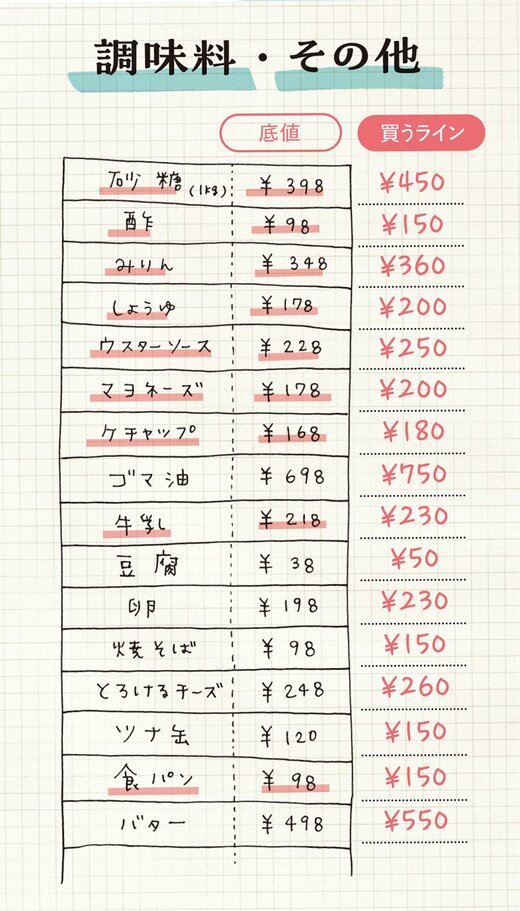 調味料・その他
底値 買うライン
砂糖(1kg) ¥398 ¥450
酢 ¥98 ¥150
みりん ¥348 ¥360
しょうゆ ¥178 ¥200
ウスターソース ¥228 ¥250
マヨネーズ ¥178 ¥200
ケチャップ ¥168 ¥180
ゴマ油 ¥698 ¥750
牛乳 ¥218 ¥230
豆腐 ¥38 ¥50
卵 ¥198 ¥230
焼そば ¥98 ¥150
とろけるチーズ ¥248 ¥260
ツナ缶 ¥120 ¥150
食パン ¥98 ¥150
バター ¥498 ¥550